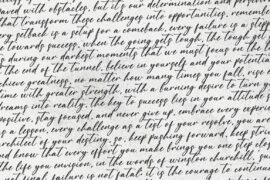 aved with obstacles, but it's our determination and perse
that transform these challenges into opportunities, remembe
ery setback is a setup for a comeback, every failure is a ste
towards success, when the going gets tough, the tough get
s during our darkest moments that we must focus on the
the end of the tunnel, believe in yourself and your potential
achieve greatness, no matter how many times you fall, rise
me with greater strength, with a burning desire to turn y
dreams into reality, the key to success lies in your attitude
positive, stay focused, and never give up, embrace every experie
as a lesson, every challenge as a test of your resolve, you are
architect of your destiny, so, keep pushing forward, keep stri
nd know that every effort you make brings you one step close
the life you envision, in the words of winston churchill, su
not final, failure is not fatal: it is the courage to continue